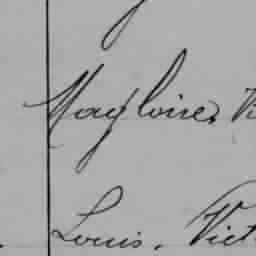 Magloire, Vi
Louis, Vict